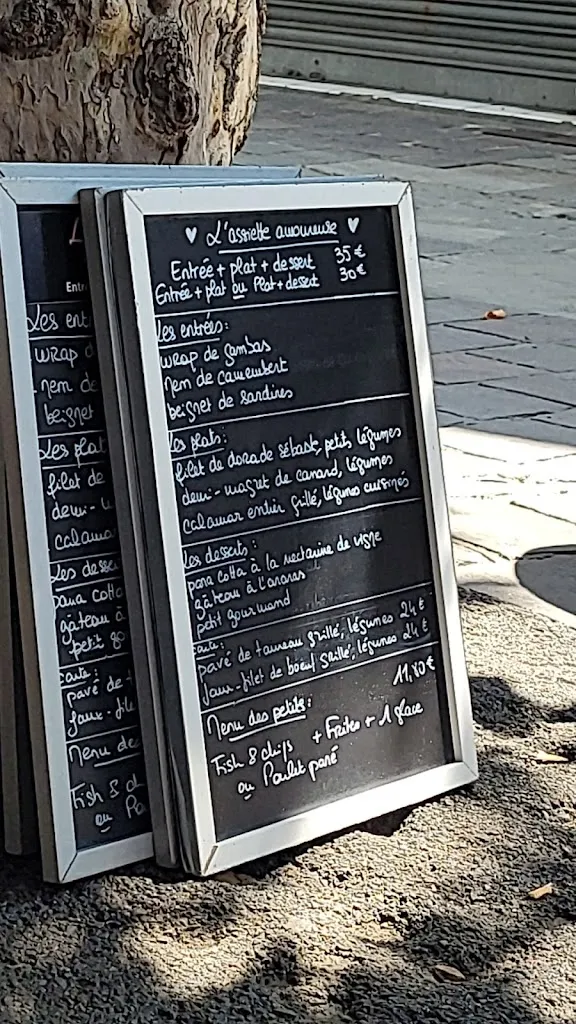 ♥ L'assiette amoureuse ♥
Entrée + plat + dessert 35 €
Entrée + plat ou Plat + dessert 30 €
Les entrées:
wrap de gambas
nem de camembert
beignet de sardines
Les plats:
filet de dorade sébaste, petits légumes
demi-magret de canard, légumes
calamar entier grillé, légumes cuisinés
Les desserts:
pana cotta à la nectarine de vigne
gâteau à l'ananas
petit gourmand
carte:
pavé de taureau grillé, légumes 24 €
faux-filet de boeuf grillé, légumes 24 €
Menu des petits: 11,80 €
Fish & chips + Frites + 1 glace
ou Poulet pané
L
Entr
Les ent
wrap d
nem de
beignet
Les plat
filet de
demi-
calama
Les desse
pana cotta
gâteau à
petit go
carte:
pavé de t
faux-file
Menu de
Fish & ch
ou Po